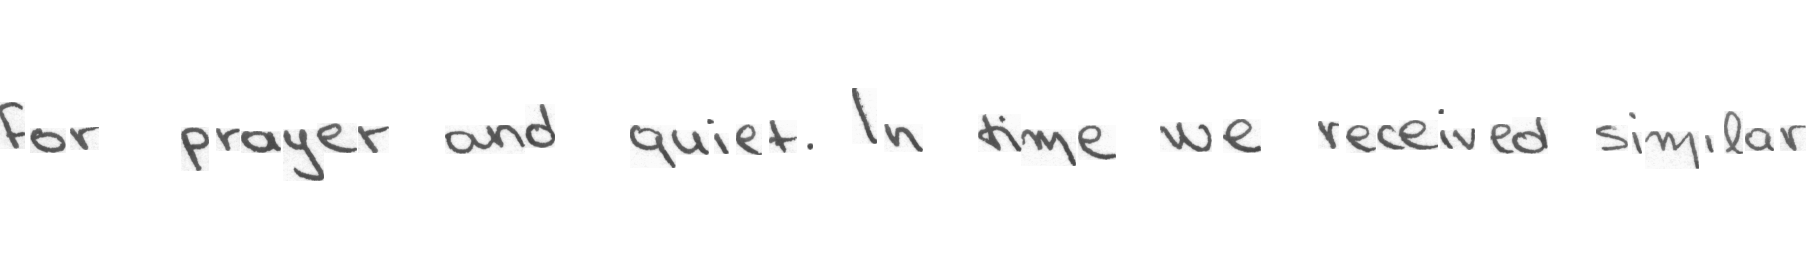 for prayer and quiet. In time we received similar